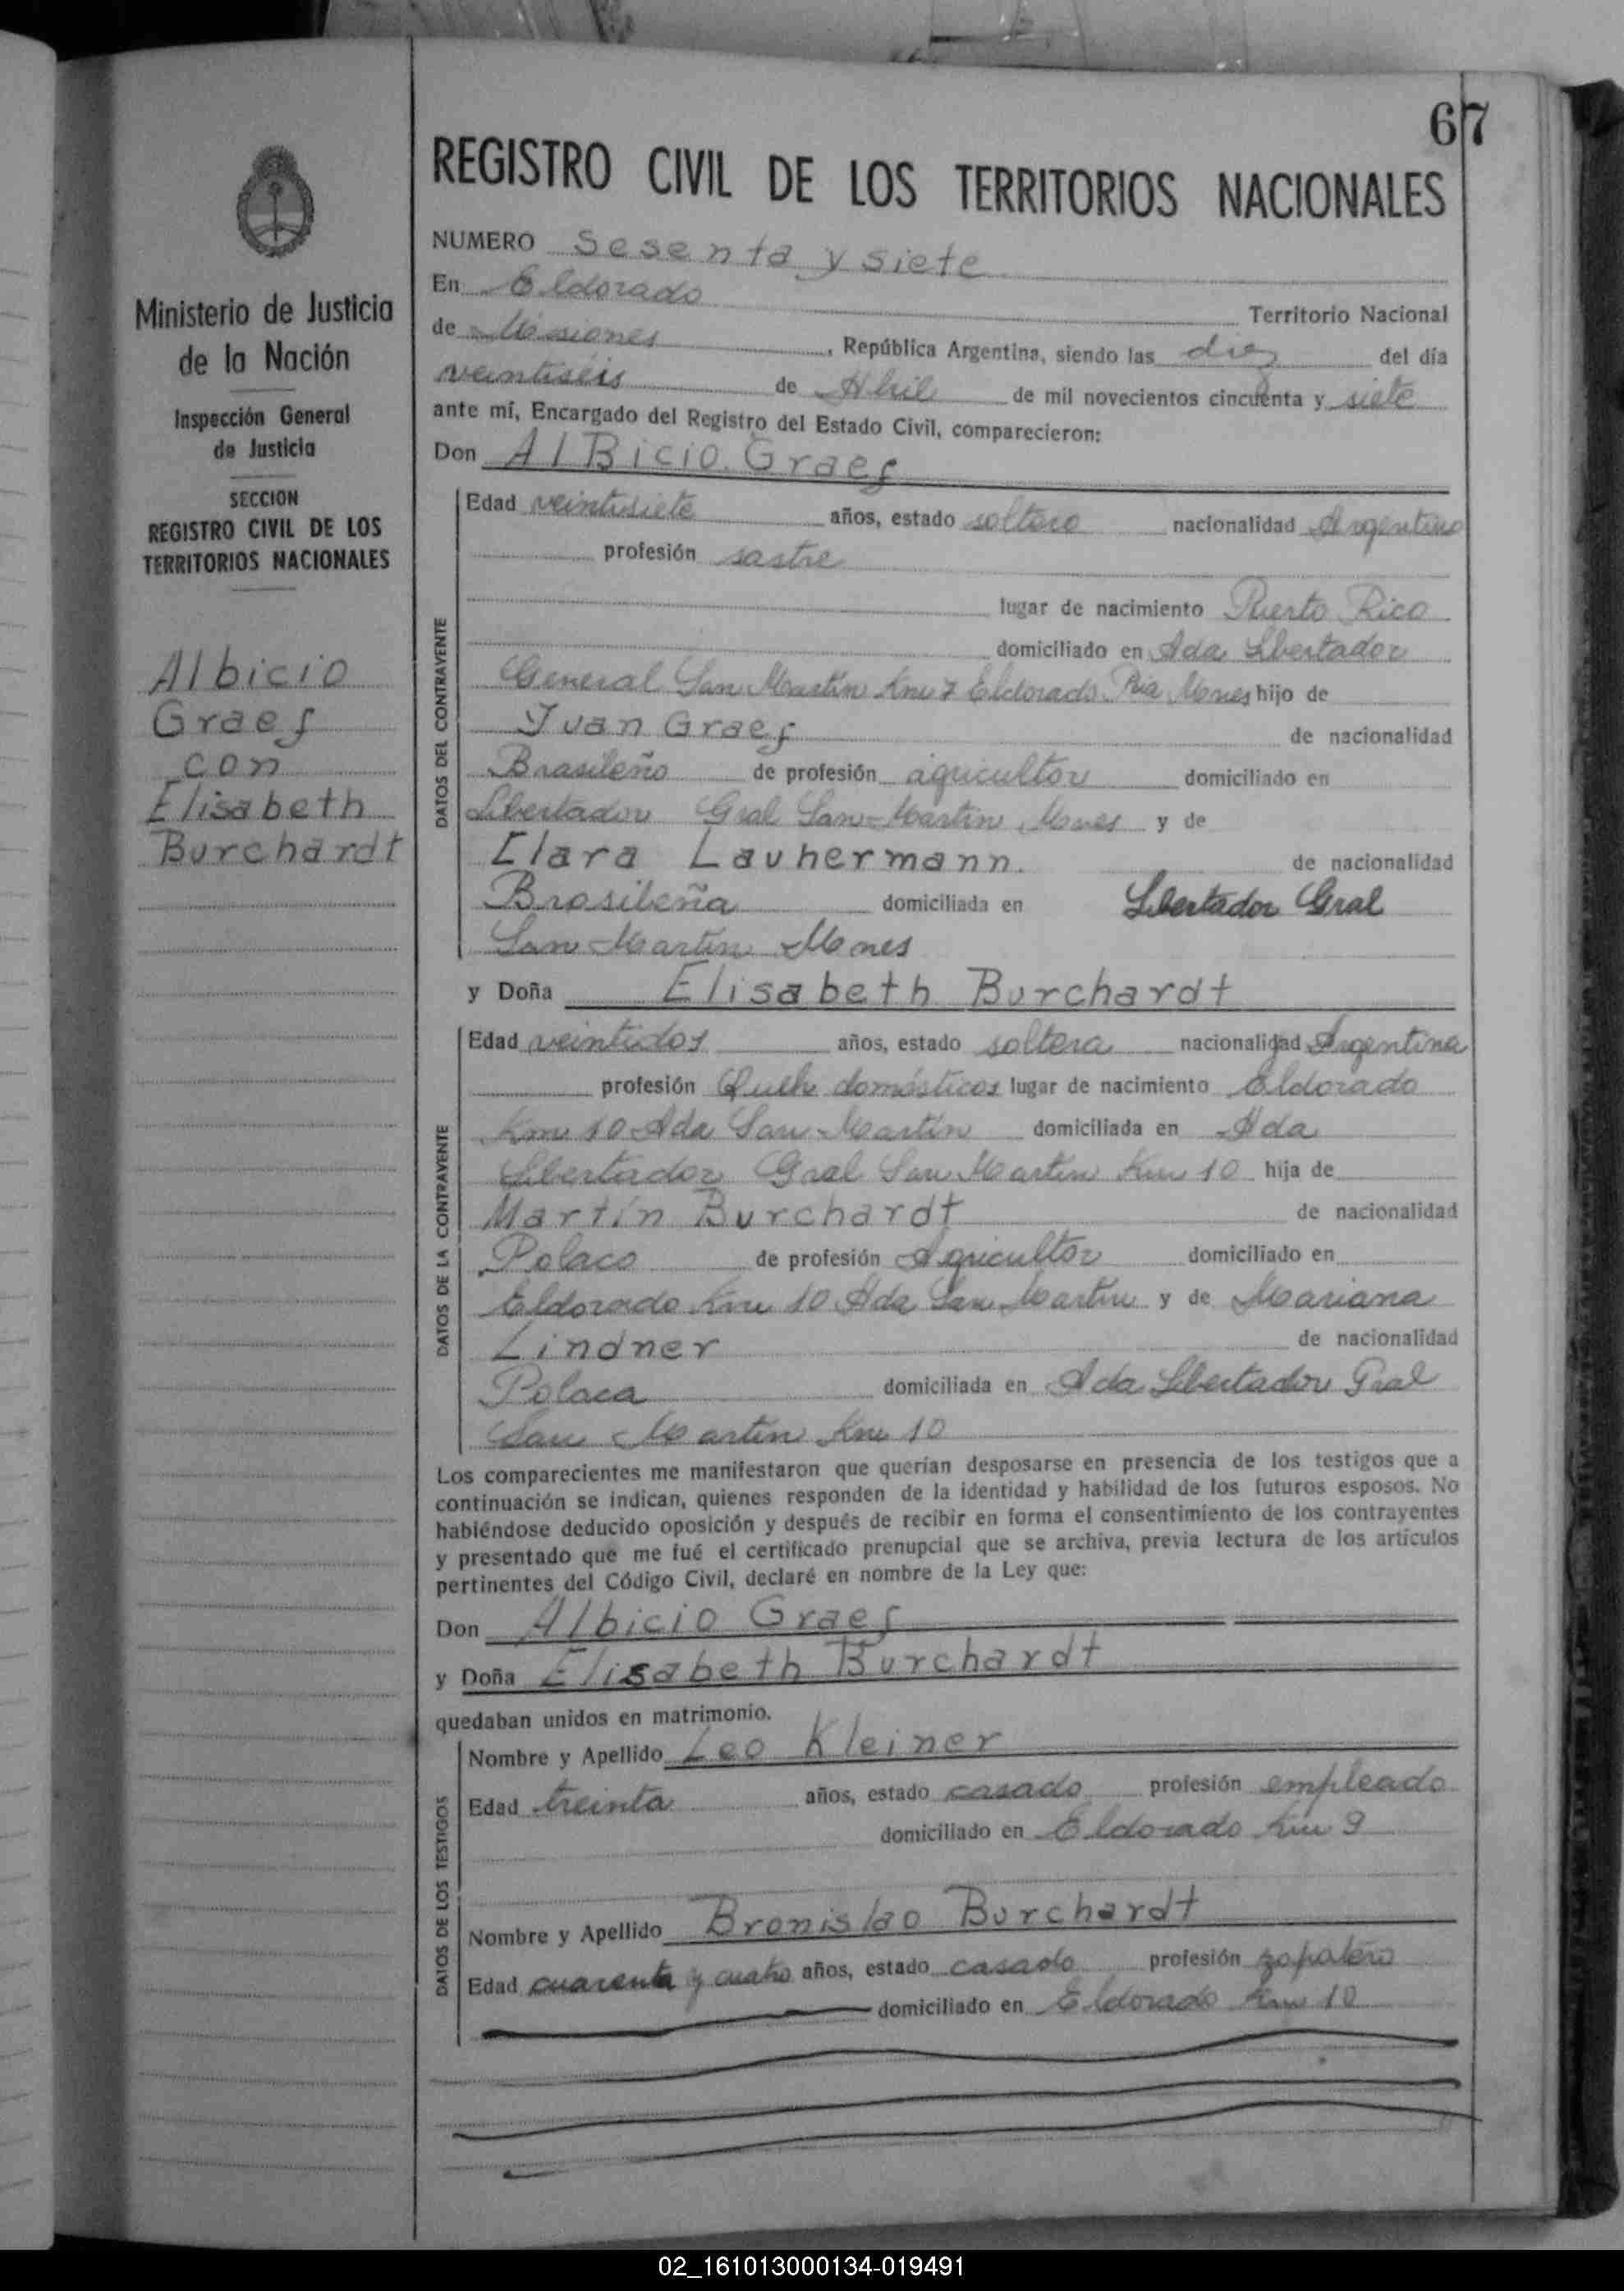 67
REGISTRO CIVIL DE LOS TERRITORIOS NACIONALES
NUMERO Sesenta y siete
En Eldorado Territorio Nacional
de Misiones, República Argentina, siendo las diez del día
veintiséis de Abril de mil novecientos cincuenta y siete
ante mí, Encargado del Registro del Estado Civil, comparecieron:
Don AlBicio Graef
Ministerio de Justicia
de la Nación
Inspección General
de Justicia
SECCION
REGISTRO CIVIL DE LOS
TERRITORIOS NACIONALES
Albicio
Graef
con
Elisabeth
Burchardt
DATOS DEL CONTRAYENTE
Edad veintisiete años, estado soltero nacionalidad Argentino
profesión sastre
lugar de nacimiento Puerto Rico
domiciliado en Ada Libertador
General San Martin Km 7 Eldorado Pia Mones hijo de
Juan Graef de nacionalidad
Brasileño de profesión agricultor domiciliado en
Libertador Gral San Martin Mones y de
Clara Lauhermann. de nacionalidad
Brasileña domiciliada en Libertador Gral
San Martin Mones
y Doña Elisabeth Burchardt
DATOS DE LA CONTRAYENTE
Edad veintidos años, estado soltera nacionalidad Argentina
profesión Queh domésticos lugar de nacimiento Eldorado
Km 10 Ada San Martin domiciliada en Ada
Libertador Gral San Martin Km 10 hija de
Martín Burchardt de nacionalidad
Polaco de profesión Agricultor domiciliado en
Eldorado Km 10 Ada San Martin y de Mariana
Lindner de nacionalidad
Polaca domiciliada en Ada Libertador Gral
San Martin Km 10
Los comparecientes me manifestaron que querían desposarse en presencia de los testigos que a
continuación se indican, quienes responden de la identidad y habilidad de los futuros esposos. No
habiéndose deducido oposición y después de recibir en forma el consentimiento de los contrayentes
y presentado que me fué el certificado prenupcial que se archiva, previa lectura de los artículos
pertinentes del Código Civil, declaré en nombre de la Ley que:
Don Albicio Graef
y Doña Elisabeth Burchardt
quedaban unidos en matrimonio.
DATOS DE LOS TESTIGOS
Nombre y Apellido Leo Kleiner
Edad treinta años, estado casado profesión empleado
domiciliado en Eldorado Km 9
Nombre y Apellido Bronislao Burchardt
Edad cuarenta y cuatro años, estado casado profesión zapatero
domiciliado en Eldorado Km 10
02_161013000134-019491